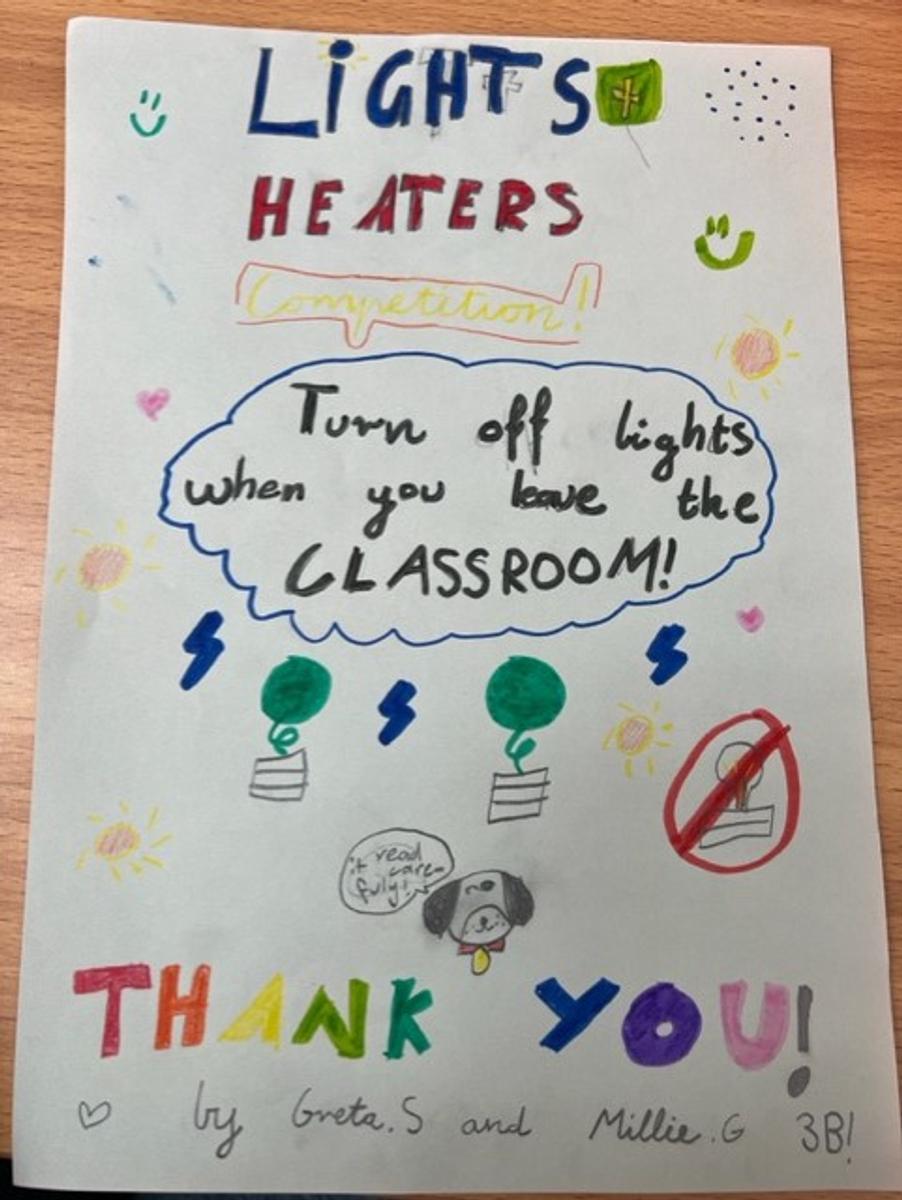 LiGHTS +
HEATERS
Competition!
Turn off lights
when you leave the
CLASSROOM!
it read
care-
fuly!
THANK YOU!
by Greta.S and Millie.G 3B!